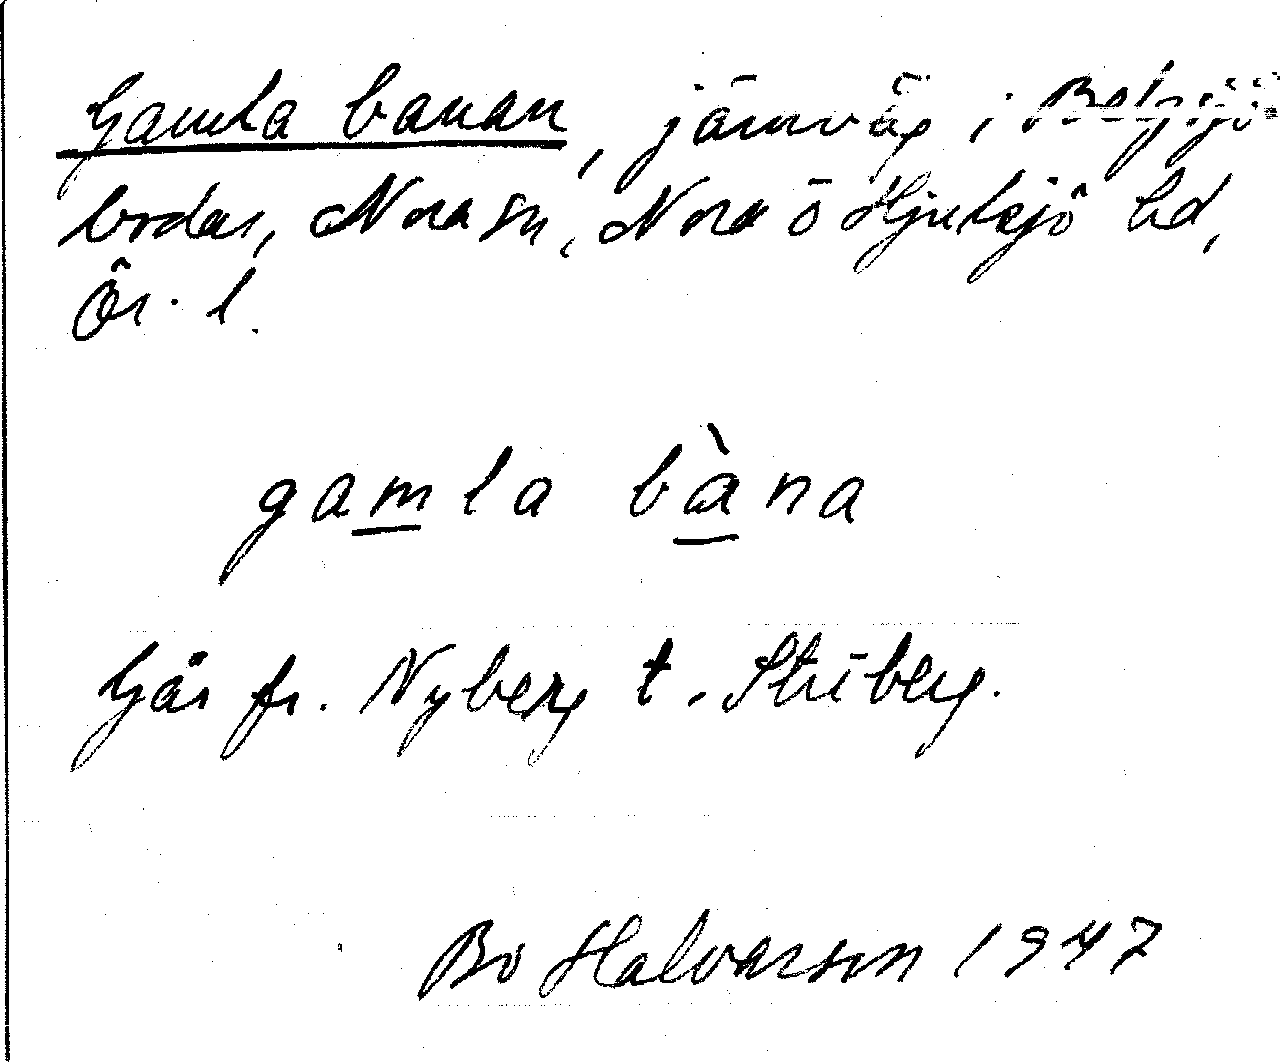 Gamla banan, järnväg i Bälgsjö-
bodar, Nora sn, Nora o Hjulsjö hd,
Ör. l.
gamla bàna
Går fr. Nyberg t. Striberg.
Bo Halvarson 1947